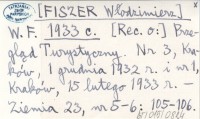 [FISZER Włodzimierz]
W. F. 1933 c. [Rec. o:] Prze-
gląd Turystyczny. Nr 3, Kra-
ków, 1 grudnia 1932 r. i nr 1,
Kraków, 15 lutego 1933 r. —
Ziemia 23, nr 5-6: 105-106.